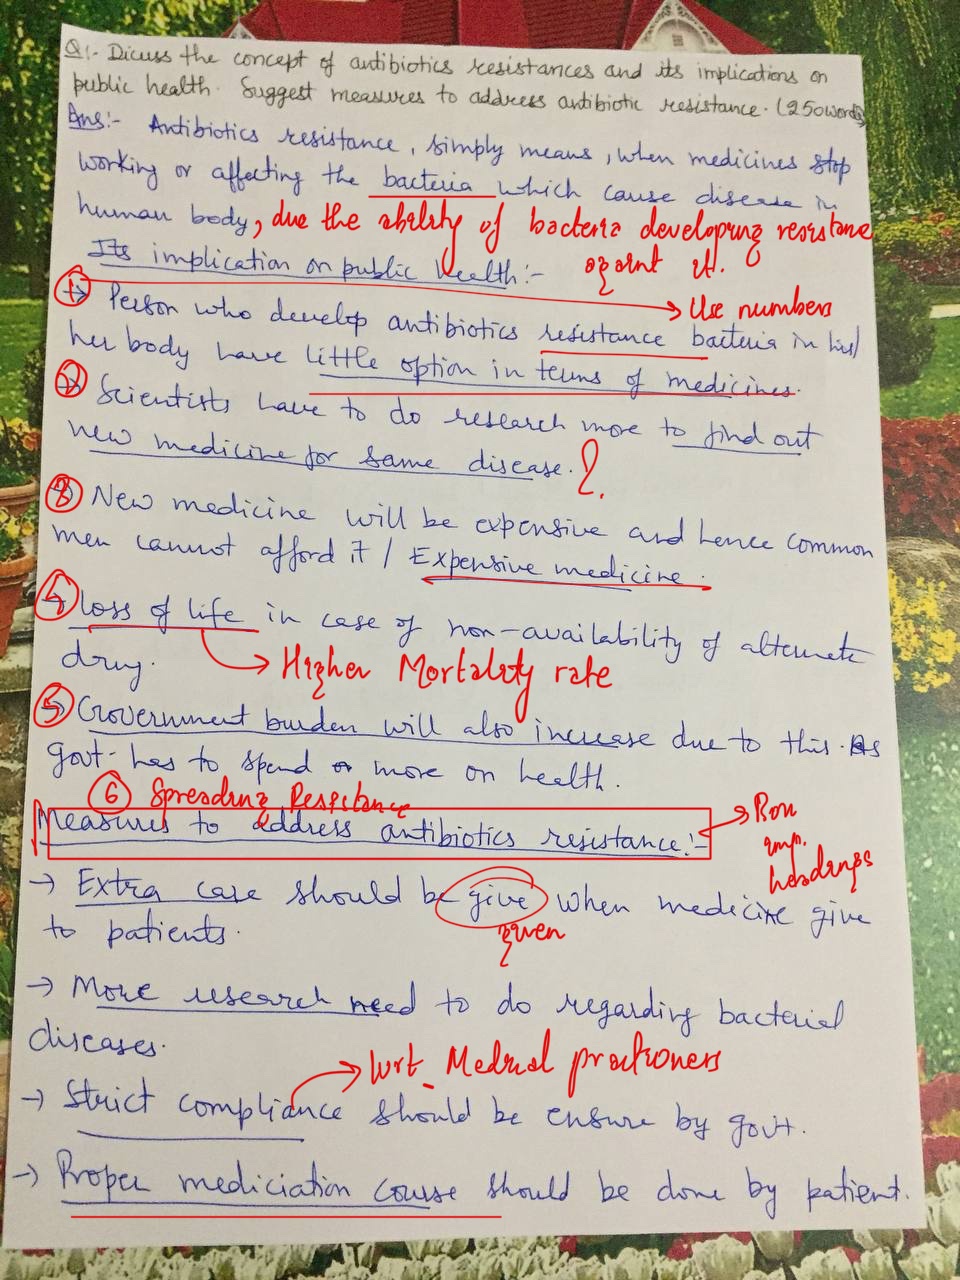 Q:- Dicuss the concept of antibiotics resistances and its implications on
public health. Suggest measures to address antibiotic resistance. (250words)
Ans:- Antibiotics resistance, simply means, when medicines stop
working or affecting the bacteria which cause disease in
human body, due the ability of bacteria developing resistance
against it.
Its implication on public health:-
Use numbers
1 → Person who develop antibiotics resistance bacteria in his/
her body have little option in terms of medicines.
2 → Scientists have to do research more to find out
new medicine for same disease. ?
3 → New medicine will be expensive and hence common
men cannot afford it / Expensive medicine.
4 → loss of life in case of non-availability of alternate
drug. → Higher Mortality rate
5 → Government burden will also increase due to this. As
govt. has to spend more on health.
6 Spreading Resistance
Measures to address antibiotics resistance:- → Box
imp.
headings
→ Extra case should be give when medicine give
to patients. given
→ More research need to do regarding bacterial
diseases.
→ wrt Medical practioners
→ Strict compliance should be ensure by govt.
→ Proper mediciation course should be done by patient.